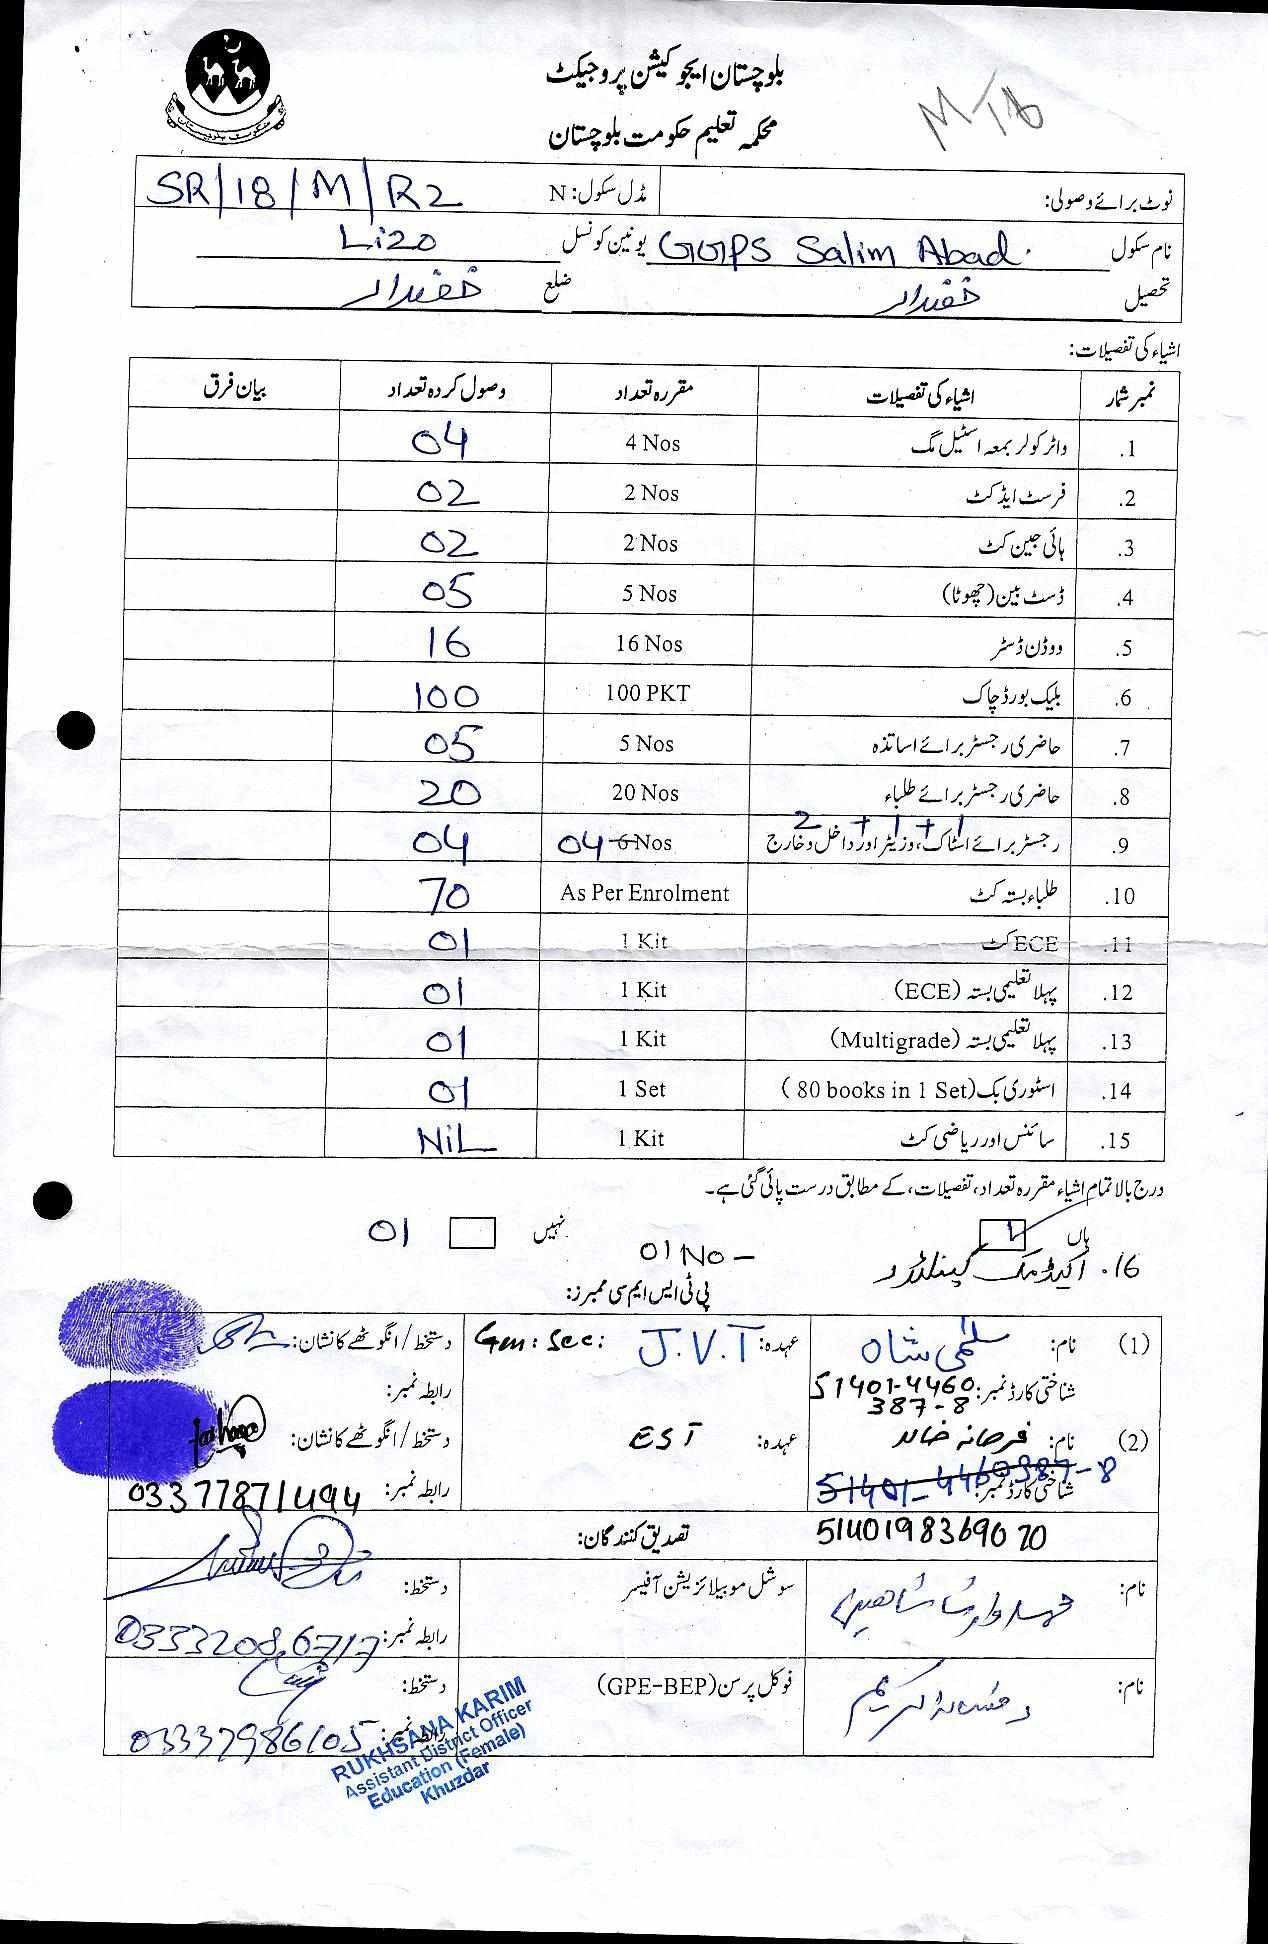 بلوچستان ایجوکیشن پروجیکٹ
محکمہ تعلیم حکومت بلوچستان
نوٹ برائے وصولی: مڈل سکول: N SR/18/M/R2
نام سکول GGPS Salim Abad. یونین کونسل Lizo
تحصیل خضدار ضلع خضدار
اشیاء کی تفصیلات:
نمبر شمار اشیاء کی تفصیلات مقررہ تعداد وصول کردہ تعداد بیان فرق
1. واٹر کولر بمعہ اسٹیل مگ 4 Nos 04
2. فرسٹ ایڈ کٹ 2 Nos 02
3. ہائی جین کٹ 2 Nos 02
4. ڈسٹ بین (چھوٹا) 5 Nos 05
5. ووڈن ڈسٹر 16 Nos 16
6. بلیک بورڈ چاک 100 PKT 100
7. حاضری رجسٹر برائے اساتذہ 5 Nos 05
8. حاضری رجسٹر برائے طلباء 20 Nos 20
2 + 1 + 1
9. رجسٹر برائے اسٹاک، وزیٹر اور داخل و خارج 04 6 Nos 04
10. طلباء بستہ کٹ As Per Enrolment 70
11. ECE کٹ 1 Kit 01
12. پہلا تعلیمی بستہ (ECE) 1 Kit 01
13. پہلا تعلیمی بستہ (Multigrade) 1 Kit 01
14. اسٹوری بک (80 books in 1 Set) 1 Set 01
15. سائنس اور ریاضی کٹ 1 Kit NiL
درج بالا تمام اشیاء مقررہ تعداد، تفصیلات، کے مطابق درست پائی گئی ہے۔
ہاں نہیں 01
16. اکیڈمک کیلنڈر 01 No –
پی ٹی ایس ایم سی ممبرز:
(1) نام: سلمیٰ شاہ عہدہ: J.V.T Gm: Sec: دستخط/انگوٹھے کا نشان:
شناختی کارڈ نمبر: 51401-4460 رابطہ نمبر:
387-8
(2) نام: فرحانہ خالد عہدہ: EST دستخط/انگوٹھے کا نشان: farhana
شناختی کارڈ نمبر: 51401-4460387-8 رابطہ نمبر: 03377871494
تصدیق کنندگان: 5140198369670
نام: سوشل موبیلائزیشن آفیسر دستخط:
رابطہ نمبر: 03332086717
نام: رخسانہ کریم فوکل پرسن (GPE-BEP) دستخط:
رابطہ نمبر: 03337986105
RUKHSANA KARIM
Assistant District Officer
Education (Female)
Khuzdar